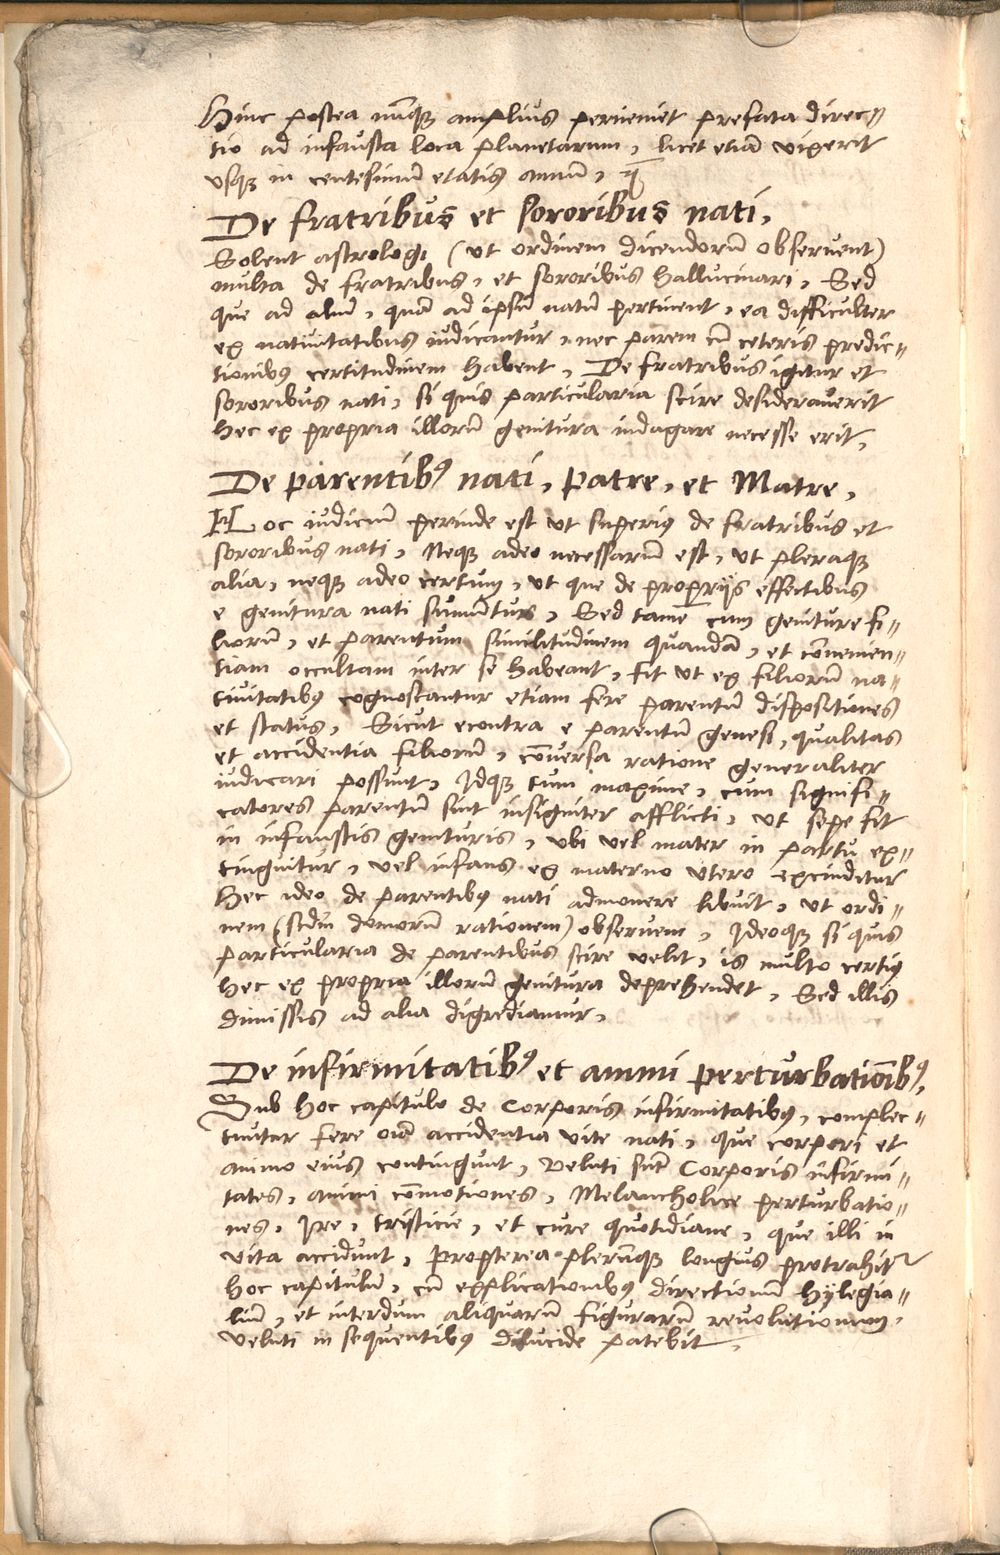 Hinc postea nūqꝫ amplius perveniet prefata direc=
tio ad infausta loca planetarum, licet etiā vixerit
vsqꝫ in centesimū etatis annū,
De fratribus et sororibus nati,
Solent astrologi (ut ordinem dicendorū observent)
multa de fratribus, et sororibus hallucinari, Sed
que ad aliū, quā ad ipsū natū pertinent, ea difficulter
ex nativitatibus iudicantur, nec parem cū ceteris predic=
tionibꝰ certitudinem habent, De fratribus igitur et
sororibus nati, si quis particularia scire desideraverit
hec ex propria illorū genitura indagare necesse erit,
De parentibꝰ nati, Patre, et Matre,
Hoc iudiciū perinde est ut superiꝰ de fratribus et
sororibus nati, Neqꝫ adeo necessariū est, ut pleraqꝫ
alia, neqꝫ adeo certum, ut que de proprijs effectibus
e genitura nati sumūtur, Sed tamē cum geniture fi=
liorū, et parentum similitudinem quandā, et convenien=
tiam occultam inter se habeant, fit ut ex filiorū na=
tivitatibꝰ cognoscantur etiam fere parentū dispositiones
et status, Sicut econtra e parentū genesi, qualitas
et accidentia filiorū, cōversa ratione generaliter
iudicari possunt, Idqꝫ tum maxime, cum signifi=
catores parentū sint insigniter afflicti, ut sepe fit
in infaustis genituris, ubi vel mater in partu ex=
tinguitur, vel infans ex materno utero exciditur
Hec ideo de parentibꝰ nati admonere libuit, ut ordi=
nem (scdm̄ domorū rationem) observem, Ideoqꝫ si quis
particularia de parentibus scire velit, is multo certiꝰ
hec ex propria illorū genitura deprehendet, Sed illis
dimissis ad alia digrediamur,
De infirmitatibꝰ et animi perturbatiōibꝰ,
Sub hoc capitulo de Corporis infirmitatibꝰ, complec=
tuntur fere oīa accidentia vite nati, que corpori et
animo eius contingunt, Veluti sūt Corporis infirmi=
tates, animi cōmotiones, Melancholice perturbatio=
nes, Ire, tristicie, et cure quotidiane, que illi in
vita accidunt, Propterea plerūqꝫ longius protrahitr
hoc capitulū, cū explicationibꝰ directionū Hylegia=
liū, et interdum aliquarū figurarū revolutionum,
veluti in sequentibꝰ dilucide patebit,